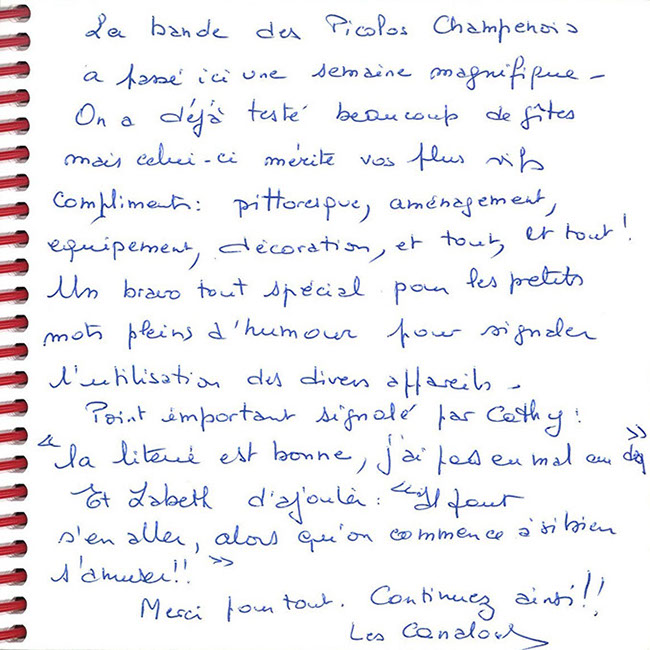 La bande des Picolos Champenois
a passé ici une semaine magnifique -
On a déjà testé beaucoup de gîtes
mais celui-ci mérite vos plus vifs
compliments : pittoresque, aménagement,
équipement, décoration, et tout, et tout !
Un bravo tout spécial pour les petits
mots pleins d'humour pour signaler
l'utilisation des divers appareils -
Point important signalé par Cathy :
"la literie est bonne, j'ai pas eu mal au dos"
Et Zabeth d'ajouter : "Il faut
s'en aller, alors qu'on commence à si bien
s'amuser !! "
Merci pour tout. Continuez ainsi !!
Les